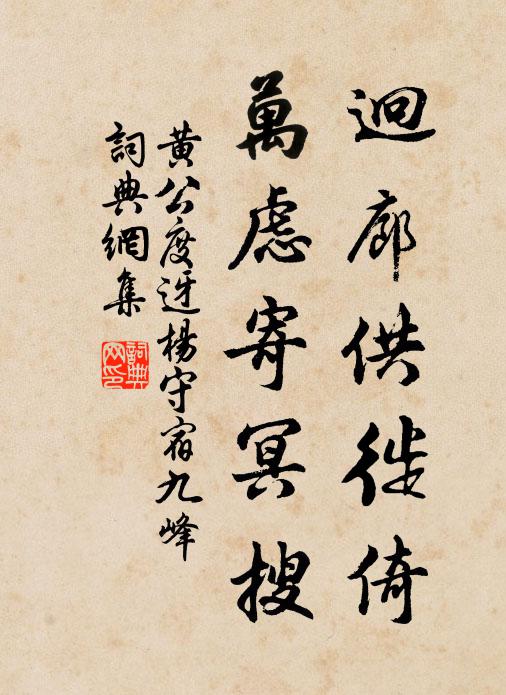 迴廊供徙倚
萬慮寄冥搜
黃公度迓楊守宿九峰
詞典網集
詞典
网印